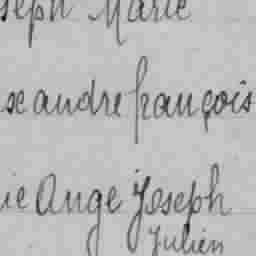 seph Marie
xandre françois
ie Ange Joseph
Julien